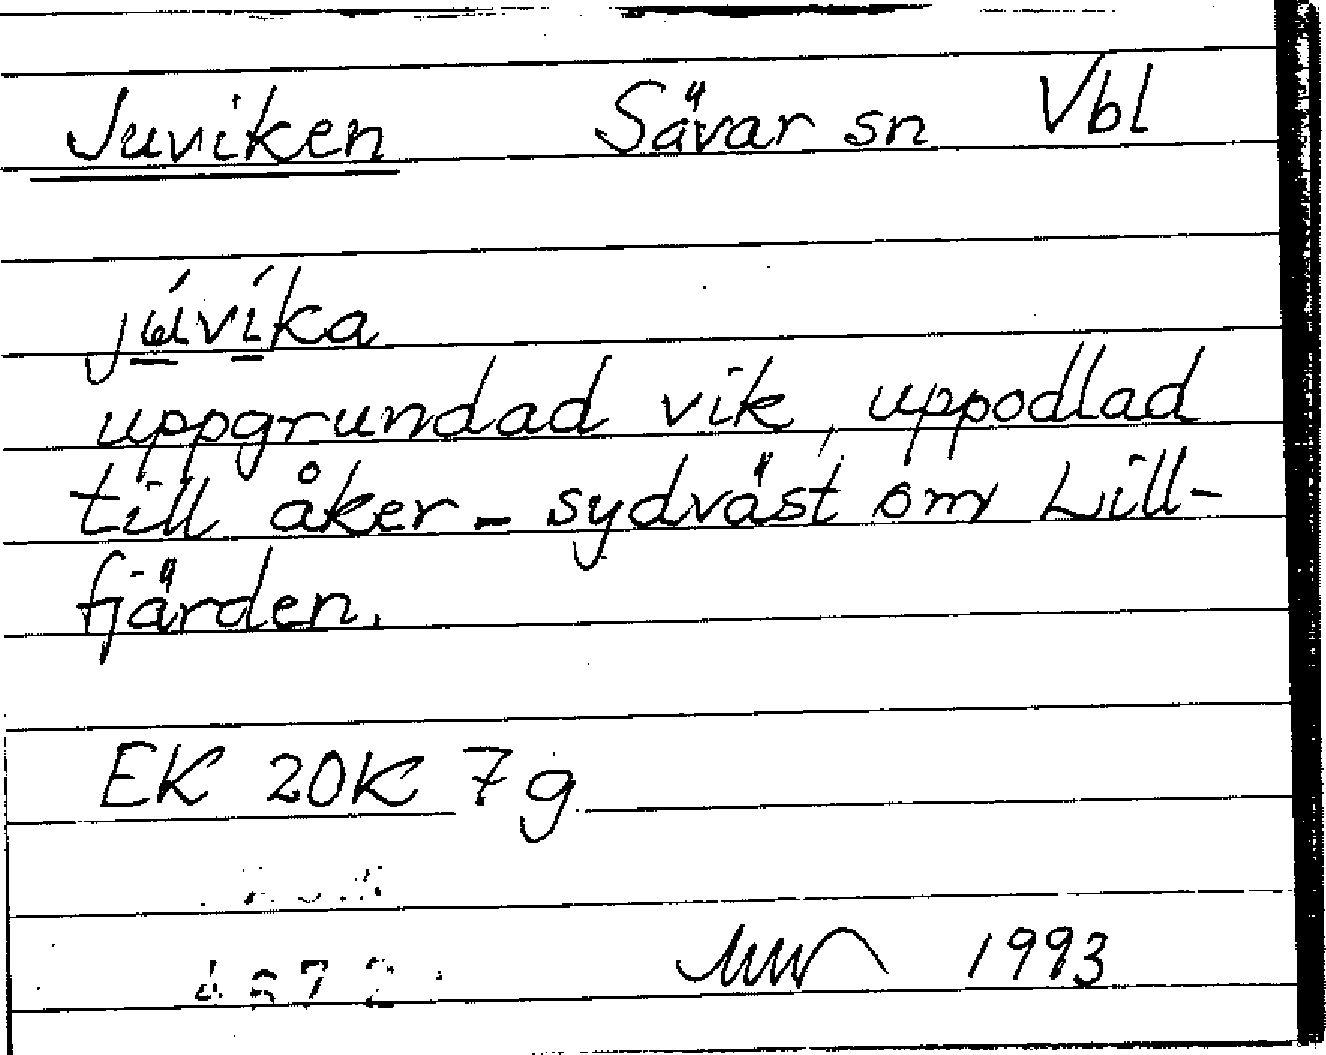 Juviken Sävar sn Vbl
júvíka
uppgrundad vik, uppodlad
till åker - sydväst om Lill-
fjärden.
EK 20K 7g
1993